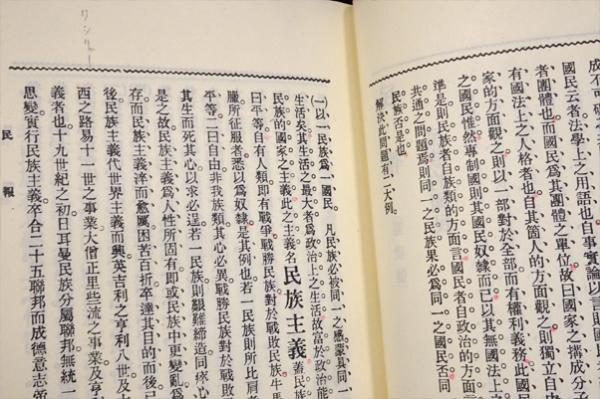 成不可
國民云者法學上之用語也自事實論以言則
者團體也而國民爲其團體之單位故曰國家之搆成分子
有國法上之人格者也自其箇人的方面觀之則獨立自由
家的方面觀之則以一部對於全部而有權利義務此國民
之國民惟然專制國則其國民奴隷而已以其無國法上之
準是則民族者自族類的方面言國民者自政治的方面言
共通之問題焉則同一之民族果必爲同一之國民否同
民族否是也。
解決此問題有二大例。
(一)以一民族爲一國民。 凡民族必被同一之感蒙具同一
生活矣其生活之最大者爲政治上之生活故富於政治能
民族的國家之主義此之主義名民族主義蓋民族
曰平等自有人類即有戰爭戰勝民族對於戰敗民族牛馬
服所征服者悉以爲奴隷是其例也若一民族則所比肩者
平等二曰自由非我族類其心必異戰勝民族對於戰敗
其生而死其心以求必逞若一民族則艱難締造同疚心
是之故民族主義爲人性所固有即或民族中更變亂爲
存而民族主義淬而愈厲困苦百折卒達其目的而後已
後民族主義代世界主義而興英吉利之亨利八世及
西之路易十一世之事業大僧正里些流之事業及亨
義者也十九世紀之初日耳曼民族分屬聯邦無統一
思變實行民族主義卒合二十五聯邦而成德意志帝
民報